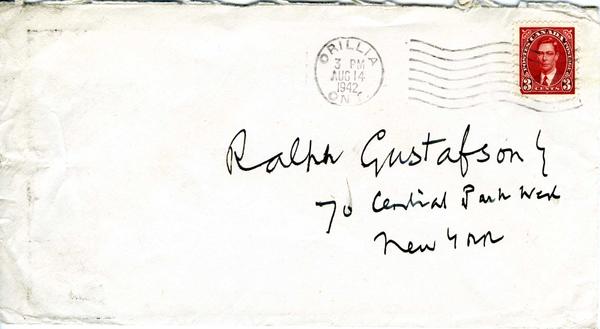 ORILLIA
3 PM
AUG 14
1942
ONT.
POSTES CANADA POSTAGE
3 CENTS 3
Ralph Gustafson
70 Central Park West
New York